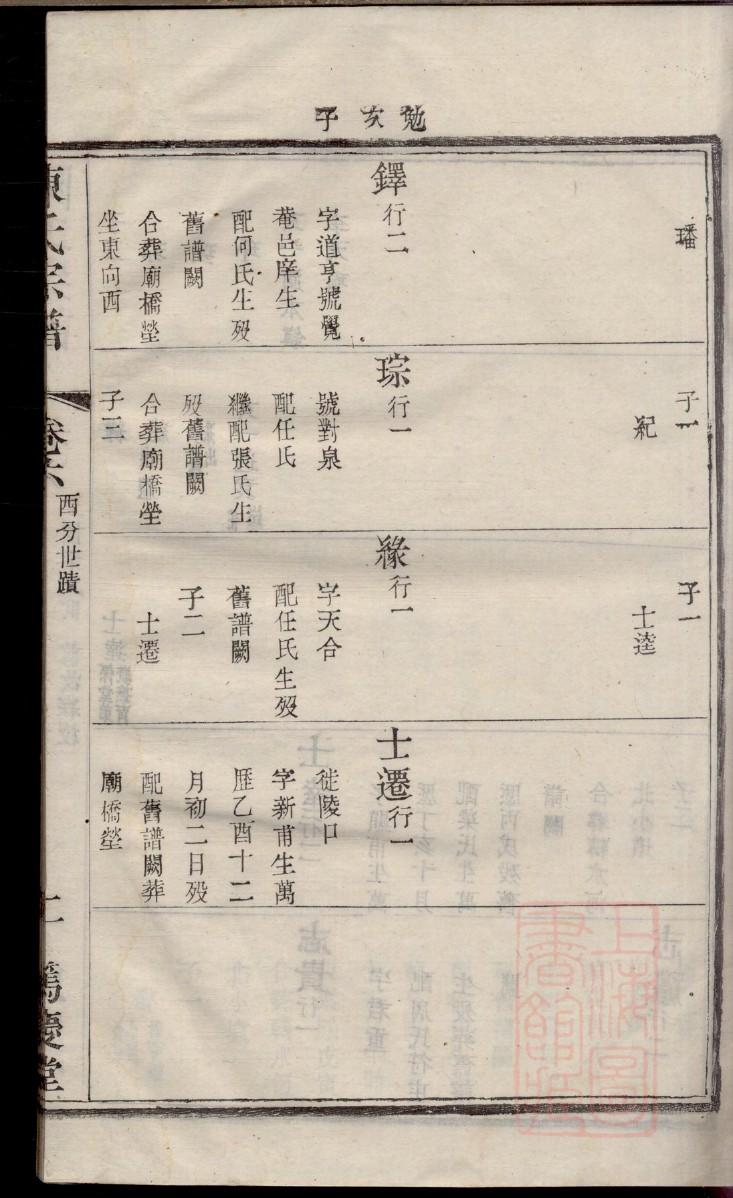 勉次子
璠
鐸行二
字道亨號覺
菴邑庠生
配何氏生歿
舊譜闕
合葬廟橋塋
坐東向西
子一
紀
琮行一
號對泉
配任氏
繼配張氏生
歿舊譜闕
合葬廟橋塋
子三
子一
士逵
緣行一
字天合
配任氏生歿
舊譜闕
子二
士遷
士遷行一
徙陵口
字新甫生萬
歷乙酉十二
月初二日歿
配舊譜闕葬
廟橋塋
陳氏宗譜
卷六
西分世蹟
篤慶堂
上海圖書館藏